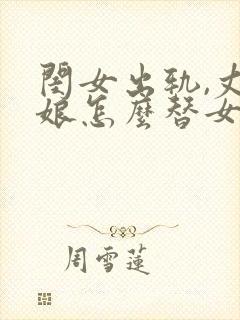 閨女出軌,丈
娘怎麼替女
周雪蓮